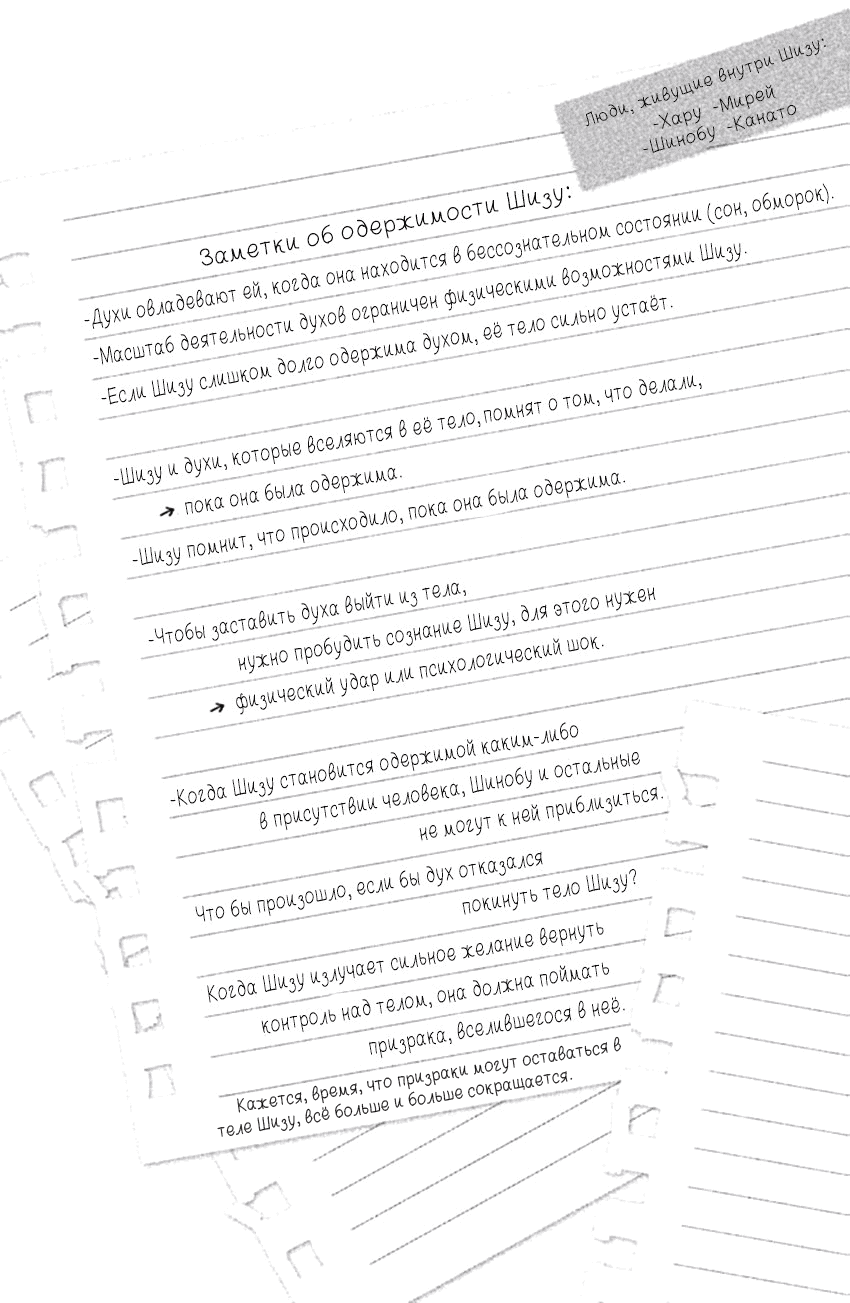 Люди, живущие внутри Шизу:
-Хару -Мирей
-Шинобу -Канато
Заметки об одержимости Шизу:
-Духи овладевают ей, когда она находится в бессознательном состоянии (сон, обморок).
-Масштаб деятельности духов ограничен физическими возможностями Шизу.
-Если Шизу слишком долго одержима духом, её тело сильно устаёт.
-Шизу и духи, которые вселяются в её тело, помнят о том, что делали,
→ пока она была одержима.
-Шизу помнит, что происходило, пока она была одержима.
-Чтобы заставить духа выйти из тела,
нужно пробудить сознание Шизу, для этого нужен
→ физический удар или психологический шок.
-Когда Шизу становится одержимой каким-либо
в присутствии человека, Шинобу и остальные
не могут к ней приблизиться.
Что бы произошло, если бы дух отказался
покинуть тело Шизу?
Когда Шизу излучает сильное желание вернуть
контроль над телом, она должна поймать
призрака, вселившегося в неё.
Кажется, время, что призраки могут оставаться в
теле Шизу, всё больше и больше сокращается.